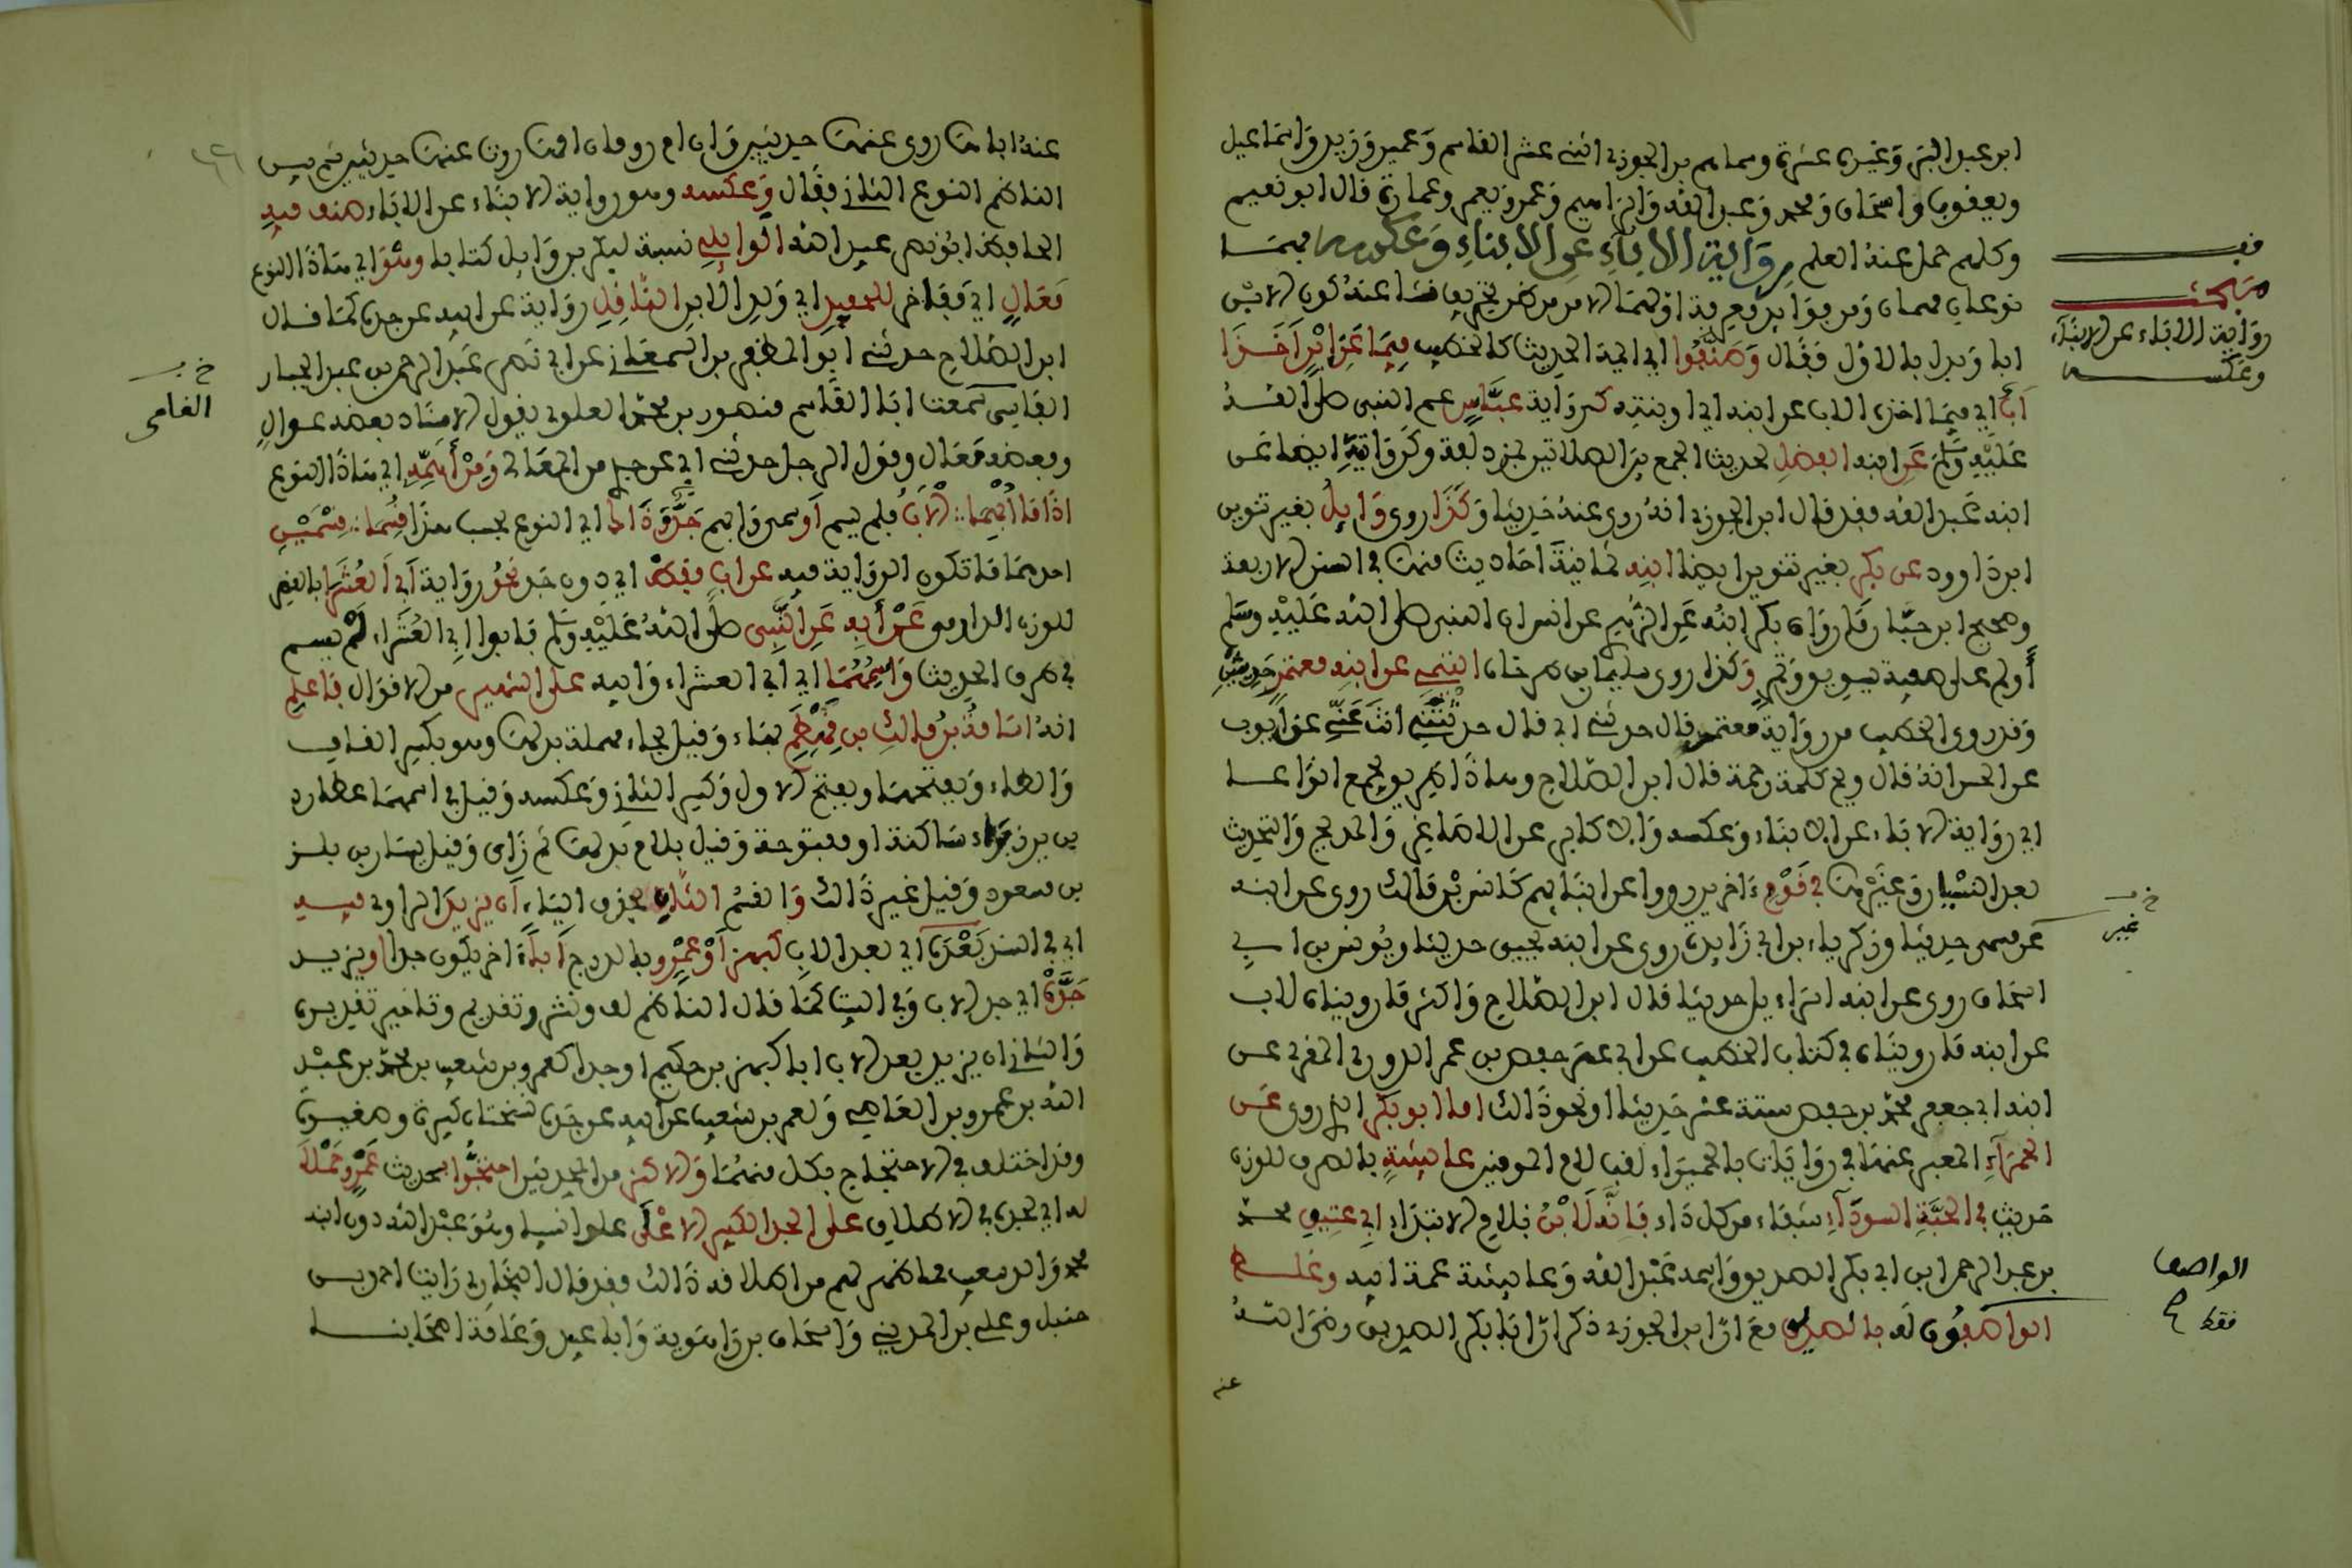 ابن عبد البر وغيره عشرة وسماهم بن الجوزي اثني عشر القاسم وعمير وزيد واسماعيل
ويعقوب واسحاق ومحمد وعبد الله وابراهيم وعمر ويعمر وعمارة قال ابو نعيم
وكلهم حمل عنه العلم رواية الاباء عن الابناء وعكسه هما
نوعان مهمان ومن فوائد معرفة اولهما الامن من ظن تحريف نشا عنه كون الابن
ابا وبدا بالاول فقال وصنفوا اي ايمة الحديث كالخطيب فيما عن ابن اخذا
اب اي فيما اخذه الاب عن ابنه اي او بنته كرواية عباس عم النبي صلى الله
عليه وسلم عن ابنه الفضل لحديث الجمع بين الصلاتين بمزدلفة وكروايته ايضا عن
ابنه عبد الله فقد قال ابن الجوزي انه روى عنه حديثا وكذا روى وايل بغير تنوين
ابن داوود عن بكر بغير تنوين ايضا ابنه ثمانية احاديث منها في السنن الاربعة
وصحيح ابن حبان ما رواه بكر ابنه عن الزهري عن انس ان النبي صلى الله عليه وسلم
أولم على صفية بسويق وتمر وكذا روى سليمان بن طرخان التيمي عن ابنه معتمر حديثين
وقد روى الخطيب من رواية معتمر قال حدثني ابي قال حدثتني انت عني عن ايوب
عن الحسن انه قال ويح كلمة رحمة قال ابن الصلاح وهذا ظريف يجمع انواعا
اي رواية الاباء عن الابناء وعكسه والاكابر عن الاصاغر والمدبج والتحديث
بعد النسيان وغيرها في قوم ءاخرين رووا عن ابنائهم كانس بن مالك روى عن ابنه
غير مسمى حديثا وزكرياء بن ابي زايدة روى عن ابنه يحيى حديثا ويونس بن ابي
اسحاق روى عن ابنه اسراءيل حديثا قال ابن الصلاح واكثر ما رويناه لاب
عن ابنه ما رويناه في كتاب الخطيب عن ابي عمر حفص بن عمر الدوري المقري عن
ابنه ابي جعفر محمد بن حفص ستة عشر حديثا او نحو ذالك اما ابو بكر الذي روى عن
الحمراء المعبر عنها في روايات بالحميراء لقب لام المومنين عايشة بالصرف للوزن
حديث في الحبة السوداء شفاء من كل داء فانه لابن فلاح الابتداء ابي عتيق محمد
بن عبد الرحمن ابن ابي بكر الصديق واسمه عبد الله وعايشة عمة ابيه وغلط
الواصفون له بالصديق مع ان ابن الجوزي ذكر ان ابا بكر الصديق رضي الله
عنه
فف
مبحث
رواية الاباء عن الابناء
وعكسه
غير
الواصف
فقط
عنه ابنا هنا روى عنها حديثين وان ام رومان امها روت عنها حديثين ثم بين
الناظم النوع الثاني فقال وعكسه وهو رواية الابناء عن الاباء صنف فيه
الحافظ ابو نصر عبيد الله الوايلي نسبة لبكر بن وايل كتابا وهو اي هذا النوع
معال اي مفاخر للحفيد اي ولد الابن الناقل رواية عن ابيه عن جده كما قال
ابن الصلاح حدثني ابو المظفر بن السمعاني عن ابي نصر عبد الرحمن بن عبد الجبار
الفامي سمعت ابا القاسم منصور بن محمد العلوي يقول الاسناد بعضه عوال
وبعضه معال وقول الرجل حدثني ابي عن جدي من المعالي ومن أهمه اي هذا النوع
اذا ما أبهما الاب فلم يسم او سمي وابهم جد وذاك اي النوع بحسب هذا قسما قسمين
احدهما ما تكون الرواية فيه عن اب فقط اي دون جد نحو رواية أبي العشرا بالقصر
للوزن الدارمي عن أبيه عن النبي صلى الله عليه وسلم فابوا ابي العشراء لم يسم
في طرق الحديث واسمهما اي ابي العشراء وابيه على الشهير من الاقوال فاعلم
انه اسامة بن مالك بن قهطم بهاء وقيل بحاء مهملة بدلها وهو بكسر القاف
والطاء وبفتحهما وبفتح الاول وكسر الثاني وعكسه وقيل في اسمهما عطارد
بن برز براء ساكنة او مفتوحة وقيل بلام بدلها ثم زاى وقيل يسار بن بلز
بن مسعود وقيل غير ذالك والقسم الثان بحذف الياء ان يزيد الراوي فيه
اي في السند بعده اي بعد الاب كبهز أو عمرو بالدرج أبا ءاخر يكون جدا او يزيد
جده اي جد الاب وفي البيت كما قال الناظم لف ونشر وتقديم وتاخير تقديره
والثاني ان يزيد بعد الاب ابا كبهز بن حكيم او جدا كعمرو بن شعيب بن محمد بن عبد
الله بن عمرو بن العاصي ولعمر بن شعيب عن ابيه عن جده نسختان كبيرة وصغيرة
وقد اختلف في الاحتجاج بكل منهما والاكثر من المحدثين احتجوا بحديث عمرو حملا
له اي لجده في الاطلاق على الجد الكبير الاعلى على انسا وهو عبد الله دون ابنه
محمد والد شعيب لما ظهر لهم من اطلاقه ذالك وقد قال البخاري رايت احمد بن
حنبل وعلي بن المديني واسحاق بن راهوية وابا عبيد وعامة اصحابنا
الفامي